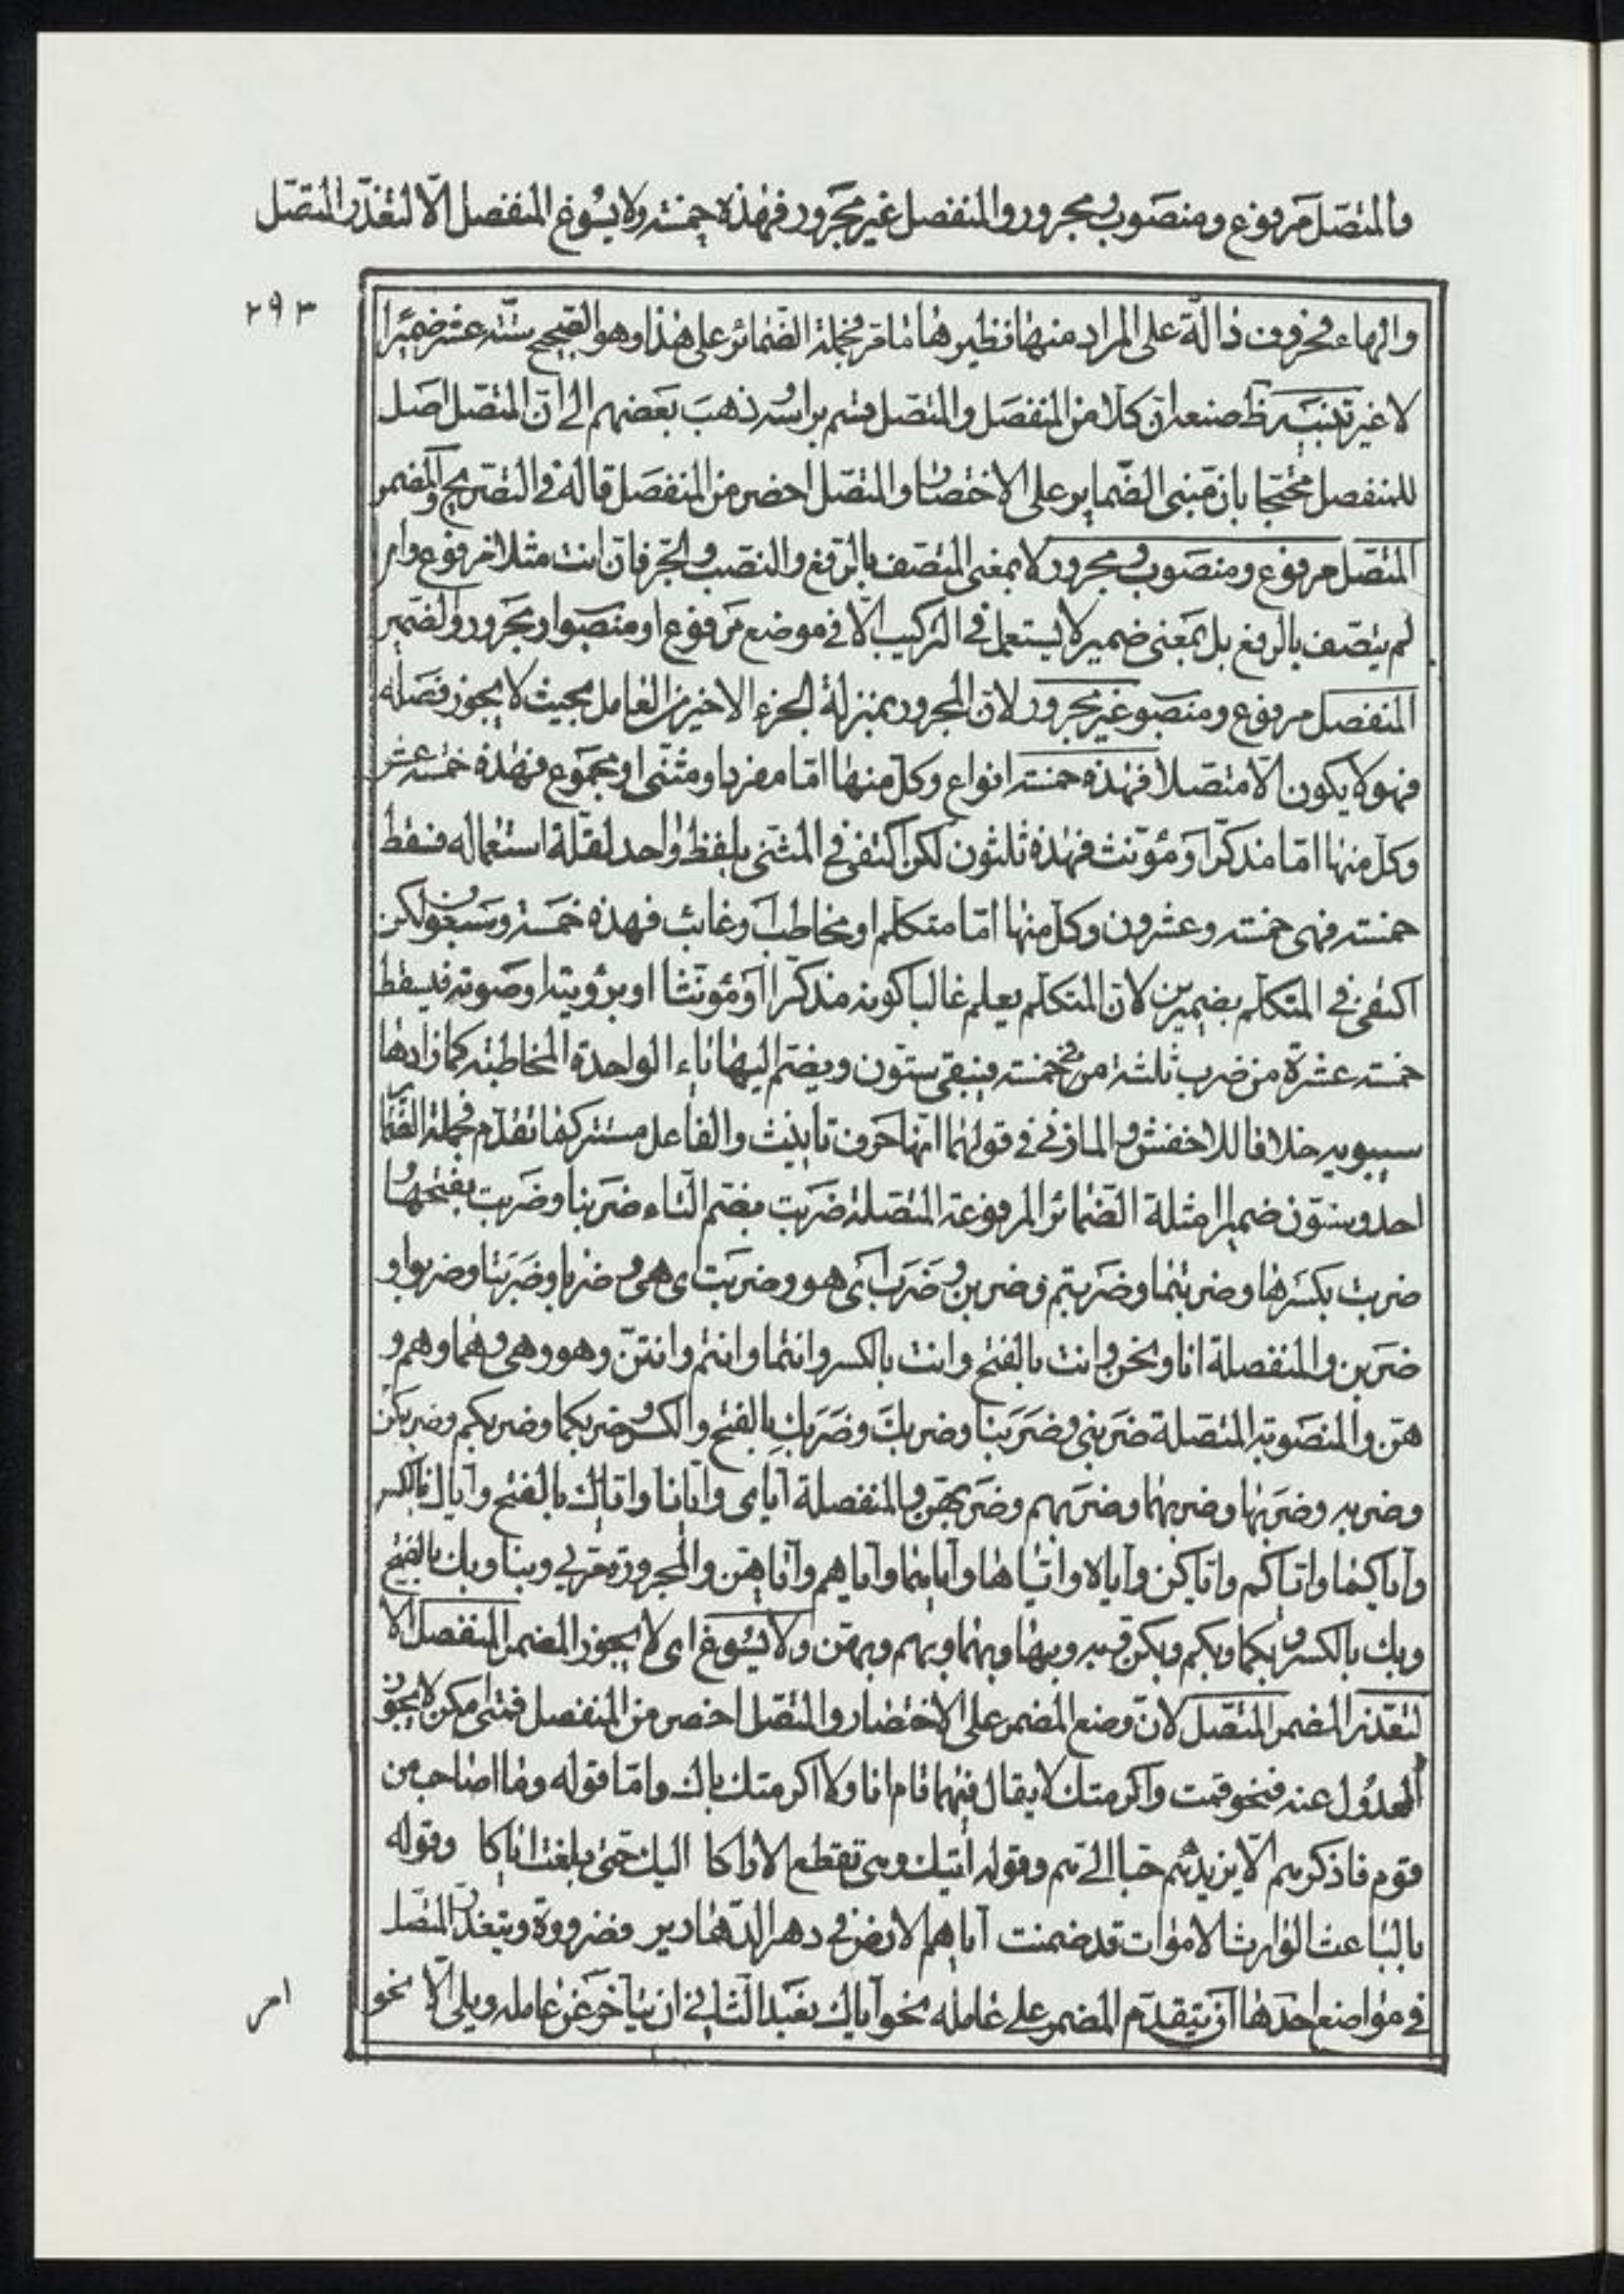 فالمتصل مرفوع ومنصوب ومجرور والمنفصل غير مجرور فهذه خمسة ولا يسوغ المنفصل الّا لتعذّر المتصل
٢٩٣
والهاء فحروف دالّة على المراد منها فنظيرها ما مر فجملة الضمائر على هذا وهو الصحيح ستة عشر ضميرا
لا غير تنبيه ظ صنعه ان كلا من المنفصل والمتصل قسم براسه وذهب بعضهم الى انّ المتصل اصل
للمنفصل محتجا بان مبنى الضماير على الاختصار والمتصل اخصر من المنفصل قاله في التصريح والمضمر
المتصل مرفوع ومنصوب ومجرور لا بمعنى المتصف بالرفع والنصب والجر فان انت مثلا مرفوع وان
لم يتصف بالرفع بل بمعنى ضمير لا يستعمل في التركيب الّا في موضع مرفوع او منصوب او مجرور والضمير
المنفصل مرفوع ومنصوب غير مجرور لان المجرور بمنزلة الجزء الاخير من العامل بحيث لا يجوز فصله
فهو لا يكون الّا متصلا فهذه خمسة انواع وكل منها امّا مفرد او مثنى او مجموع فهذه خمسة عشر
وكل منها امّا مذكر او مؤنث فهذه ثلثون لكن اكتفى في المثنى بلفظ واحد لقلة استعماله فسقط
خمسة فهى خمسة وعشرون وكل منها امّا متكلم او مخاطب او غائب فهذه خمسة وسبعون لكن
اكتفى في المتكلم بضميرين لان المتكلم يعلم غالبا كونه مذكرا او مؤنثا او برؤيته او صوته فيسقط
خمسة عشرة من ضرب ثلثة في خمسة فيبقى ستون ويضم اليها ياء الواحدة المخاطبة كما زادها
سيبويه خلافا للاخفش والمازنى في قولهما انها حرف تأنيث والفاعل مستتر كما تقدّم فجملة الضمائر
احد وستون ضميرا امثلة الضمائر المرفوعة المتصلة ضربت بضم التاء ضربنا وضربت بفتحها و
ضربت بكسرها وضربتما وضربتم وضربتن وضرب اى هو وضربت اى هى وضربا وضربتا وضربوا و
ضربن والمنفصلة انا ونحن وانت بالفتح وانت بالكسر وانتما وانتم وانتنّ وهو وهى وهما وهم و
هنّ والمنصوبة المتصلة ضربنى وضربنا وضربك وضربك بالفتح والكسر وضربكما وضربكم وضربكنّ
وضربه وضربها وضربهما وضربهم وضربهنّ والمنفصلة اياى وايانا واياك بالفتح واياك بالكسر
واياكما واياكم واياكن واياه واياها واياهما واياهم واياهنّ والمجرورة مرّ بى وبنا وبك بالفتح
وبك بالكسر وبكما وبكم وبكن وبه وبها وبهما وبهم وبهنّ ولا يسوغ اى لا يجوز المضمر المنفصل الّا
لتعذر المضمر المتصل لان وضع المضمر على الاختصار والمتصل اخصر من المنفصل فمتى امكن لا يجوز
العدول عنه فنحو قمت واكرمتك لا يقال فيهما قام انا ولا اكرمت اياك وامّا قوله وما اصاحب من
قوم فاذكرهم الّا يزيدهم حبا الىّ هم وقوله اتيك وهى تقطع الاراكا اليك حتى بلغت اياكا وقوله
بالباعث الوارث الاموات قد ضمنت اياهم الارض في دهر الدهارير فضرورة ويتعذر المتصل
في مواضع احدها ان يتقدّم المضمر على عامله نحو اياك نعبد الثانى ان يتأخر عن عامله ويلى الّا نحو
امر